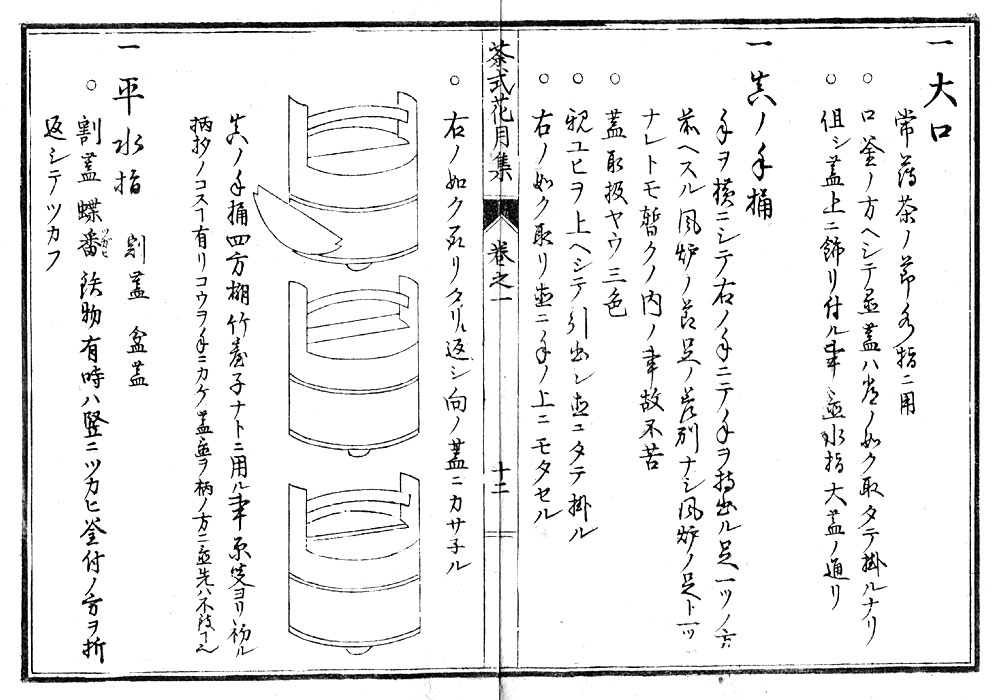 一 大口
常薄茶ノ節水指ニ用
○ 口釜ノ方ヘシテ置蓋ハ常ノ如ク取タテ掛ルナリ
○ 但シ蓋上ニ飾リ付ル事ハ並水指大蓋ノ通リ
一 真ノ手桶
手ヲ横ニシテ右ノ手ニテノ手ヲ持出ル足一ツノ方
前ヘスル風炉ノ節足ノ差別ナシ風炉ノ足ト一ツ
ナレトモ暫クノ内ノ事故不苦
○ 蓋取扱ヤウ三色
○ 親ユヒヲ上ヘシテ引出シ直ニタテ掛ル
○ 右ノ如ク取リ直ニノ手ノ上ニモタセル
茶式花月集 巻之一 十二
○ 右ノ如ク取リクリ返シ向ノ蓋ニカサ子ル
真ノ手桶四方棚竹台子ナトニ用ル事原叟ヨリ初ル
柄杓ノコスー有リコウヲ手ニカケ蓋置ヲ柄ノ方ニ置先ハ不
一 平水指 割蓋 盆蓋
○ 割蓋蝶番鉄物有時ハ竪ニツカヒ釜付ノ方ヲ折
返シテツカフ